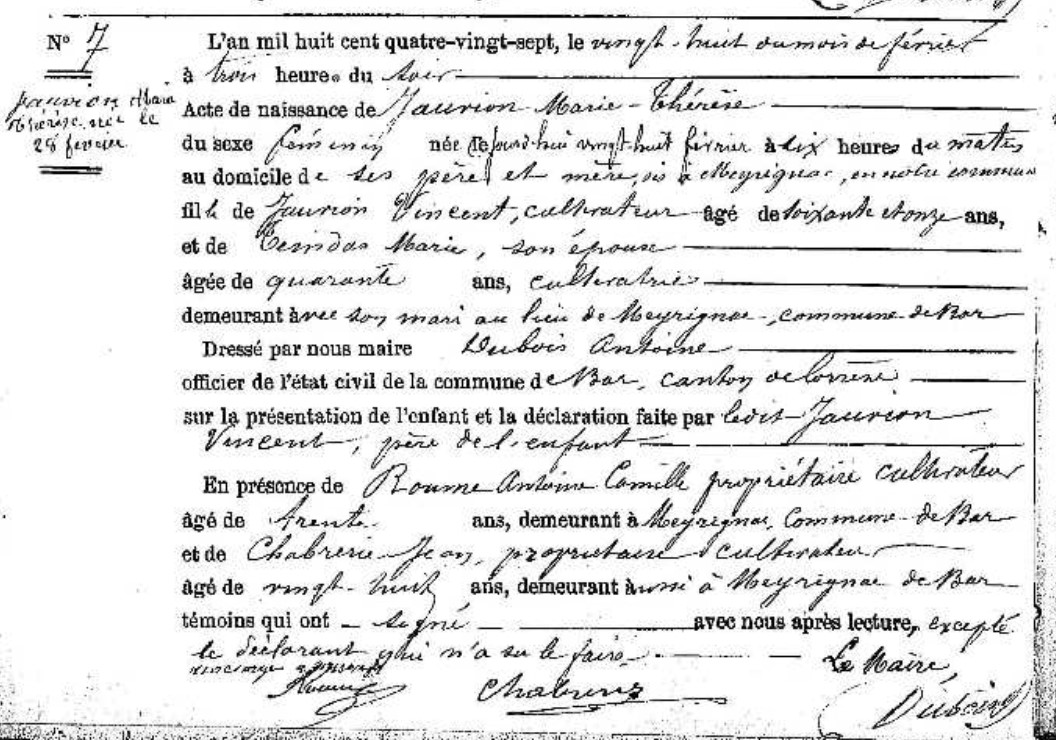 N° 7
Jaurion Marie
Thérèse née le
28 février
L'an mil huit cent quatre-vingt-sept, le vingt-huit du mois de février
à trois heures du soir
Acte de naissance de Jaurion Marie-Thérèse
du sexe féminin née cejourd'hui vingt-huit février à six heures du matin
au domicile de ses père et mère, sis à Meyrignac, en notre commune
fille de Jaurion Vincent, cultivateur âgé de soixante et onze ans,
et de Marie, son épouse
âgée de quarante ans, cultivatrice
demeurant avec son mari au lieu de Meyrignac, commune de Bar
Dressé par nous maire Dubois Antoine
officier de l'état civil de la commune de Bar, canton de Corrèze
sur la présentation de l'enfant et la déclaration faite par ledit Jaurion
Vincent, père de l'enfant
En présence de Roume Antoine Camille propriétaire cultivateur
âgé de trente ans, demeurant à Meyrignac, Commune de Bar
et de Chabrerie Jean, propriétaire cultivateur
âgé de vingt-huit ans, demeurant aussi à Meyrignac de Bar
témoins qui ont signé avec nous après lecture, excepté
le déclarant qui n'a su le faire
Le Maire,
Roume Chabrerie Dubois